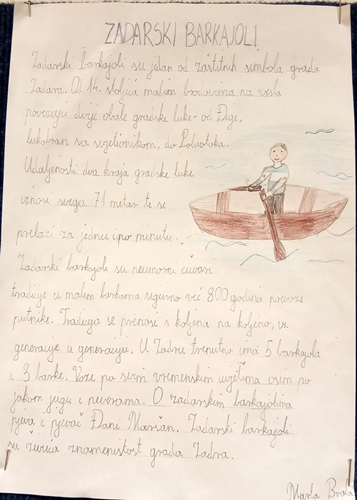 ZADARSKI BARKAJOLI
Zadarski barkajoli su jedan od zaštitnih simbola grada
Zadra. Od 14. stoljeća malim brodovima na vesla
povezuju dvije obale gradske luke - od Đige,
lukobran sa svjetionikom, do
Udaljenosti dva kraja gradske luke
iznosi svega 71 metar te se
prelazi za jednu ipo minutu.
Zadarski barkajoli su neumorni čuvari
tradicije u malim barkama sigurno već 800 godina prevoze
putnike. Tradicija se prenosi s koljena na koljeno, iz
generacije u generaciju. U Zadru trenutno ima 5 barkajola
i 3 barke. Voze po svim vremenskim uvjetima osim po
jakom jugu i neverama. O zadarskim barkajolima
pjeva i pjevač Đani Maršan. Zadarski barkajoli
su živuća znamenitost grada Zadra.
Marta